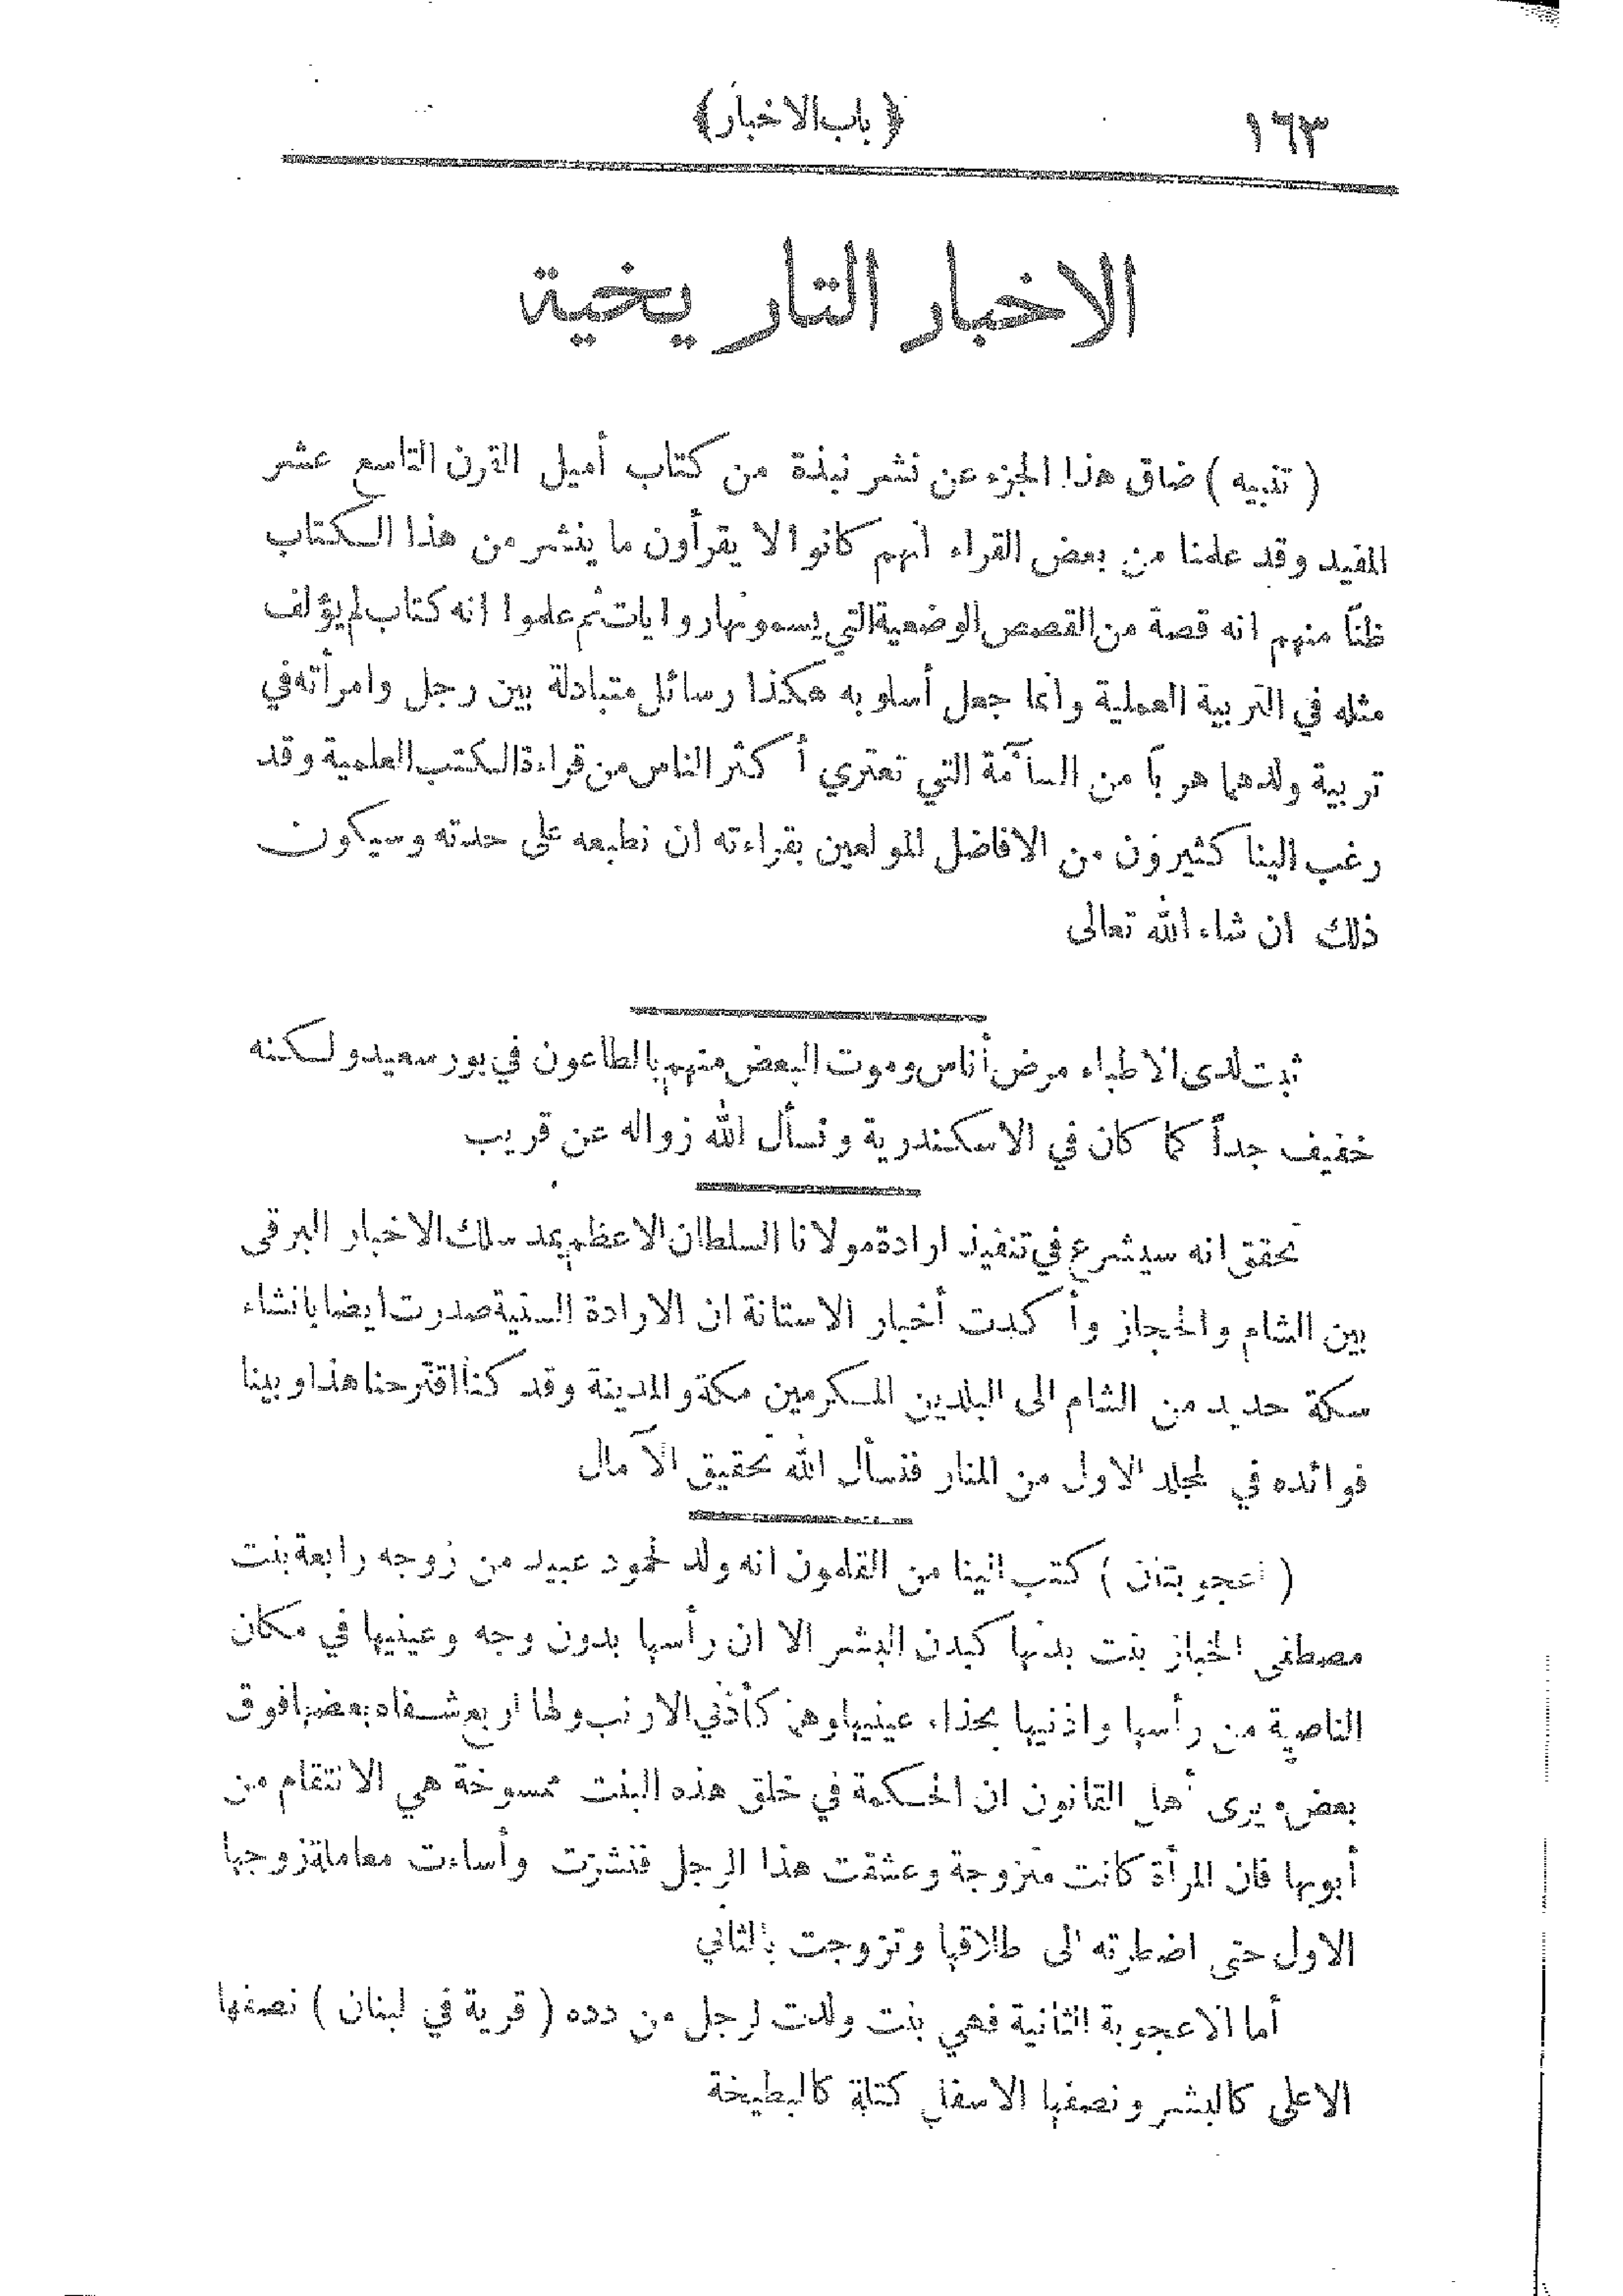 ١٦٣
﴿ باب الاخبار ﴾
الاخبار التاريخية
( تنبيه ) ضاق هذا الجزء عن نشر نبذة من كتاب أميل القرن التاسع عشر
المفيد وقد علمنا من بعض القراء انهم كانوا لا يقرأون ما ينشر من هذا الكتاب
ظناً منهم انه قصة من القصص الوضعية التي يسمونها روايات ثم علموا انه كتاب لم يؤلف
مثله في التربية العملية وانما جعل أسلوبه هكذا رسائل متبادلة بين رجل وامرأته في
تربية ولدهما هرباً من السآمة التي تعتري أكثر الناس من قراءة الكتب العلمية وقد
رغب الينا كثيرون من الافاضل المولعين بقراءته ان نطبعه على حدته وسيكون
ذلك ان شاء الله تعالى
ثبت لدى الاطباء مرض أناس وموت البعض منهم بالطاعون في بور سعيد ولكنه
خفيف جداً كما كان في الاسكندرية ونسأل الله زواله عن قريب
تحقق انه سيشرع في تنفيذ ارادة مولانا السلطان الاعظم بمد سلك الاخبار البرقي
بين الشام والحجاز وأكدت أخبار الاستانة ان الارادة السنية صدرت ايضا بانشاء
سكة حديد من الشام الى البلدين المكرمين مكة والمدينة وقد كنا اقترحنا هذا وبينا
فوائده في المجلد الاول من المنار فنسأل الله تحقيق الآمال
( أعجوبتان ) كتب الينا من القلمون انه ولد لمحمود عبيد من زوجه رابعة بنت
مصطفى الخباز بنت بدنها كبدن البشر الا ان رأسها بدون وجه وعينيها في مكان
الناصية من رأسها واذنيها بحذاء عينيها وهن كأذني الارنب ولها اربع شفاه بعضها فوق
بعض ويرى أهل القانون ان الحكمة في خلق هذه البنت ممسوخة هي الانتقام من
أبويها فان المرأة كانت متزوجة وعشقت هذا الرجل فنشزت وأساءت معاملة زوجها
الاول حتى اضطرته الى طلاقها وتزوجت بالثاني
أما الاعجوبة الثانية فهي بنت ولدت لرجل من دده ( قرية في لبنان ) نصفها
الاعلى كالبشر ونصفها الاسفل كتلة كالبطيخة